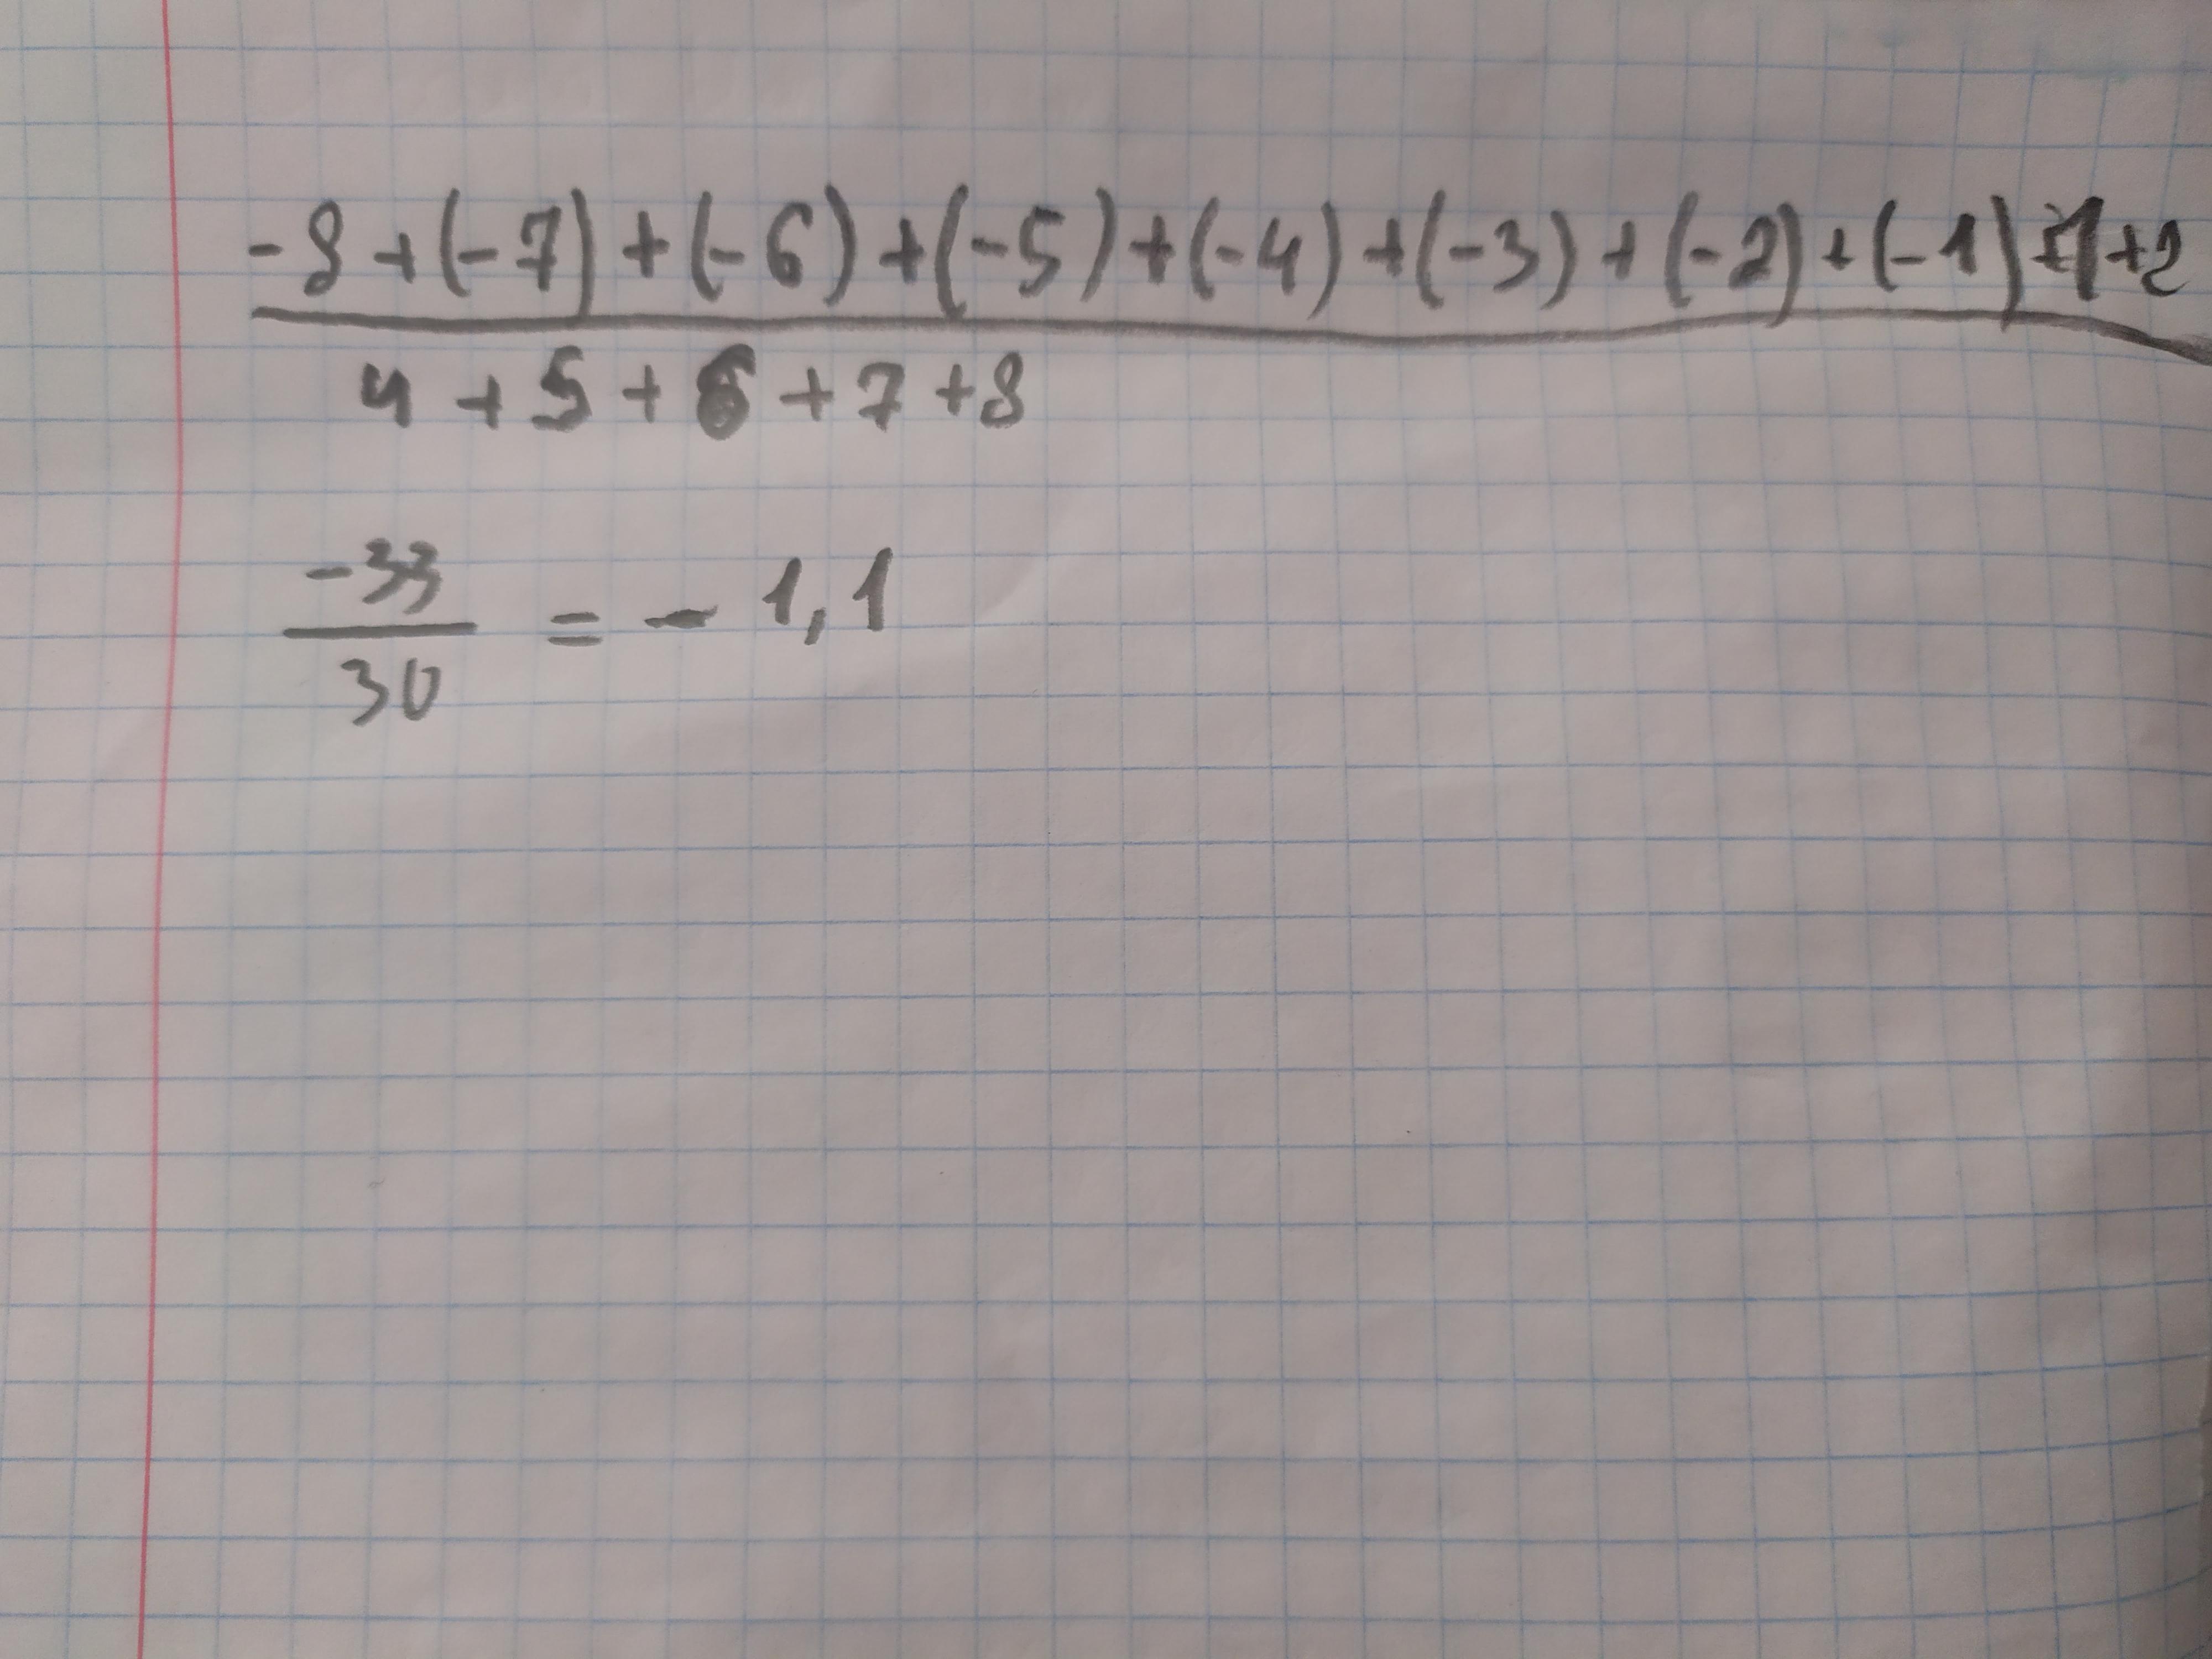 -8+(-7)+(-6)+(-5)+(-4)+(-3)+(-2)+(-1)+1+2
4+5+6+7+8
-33
30
= - 1,1